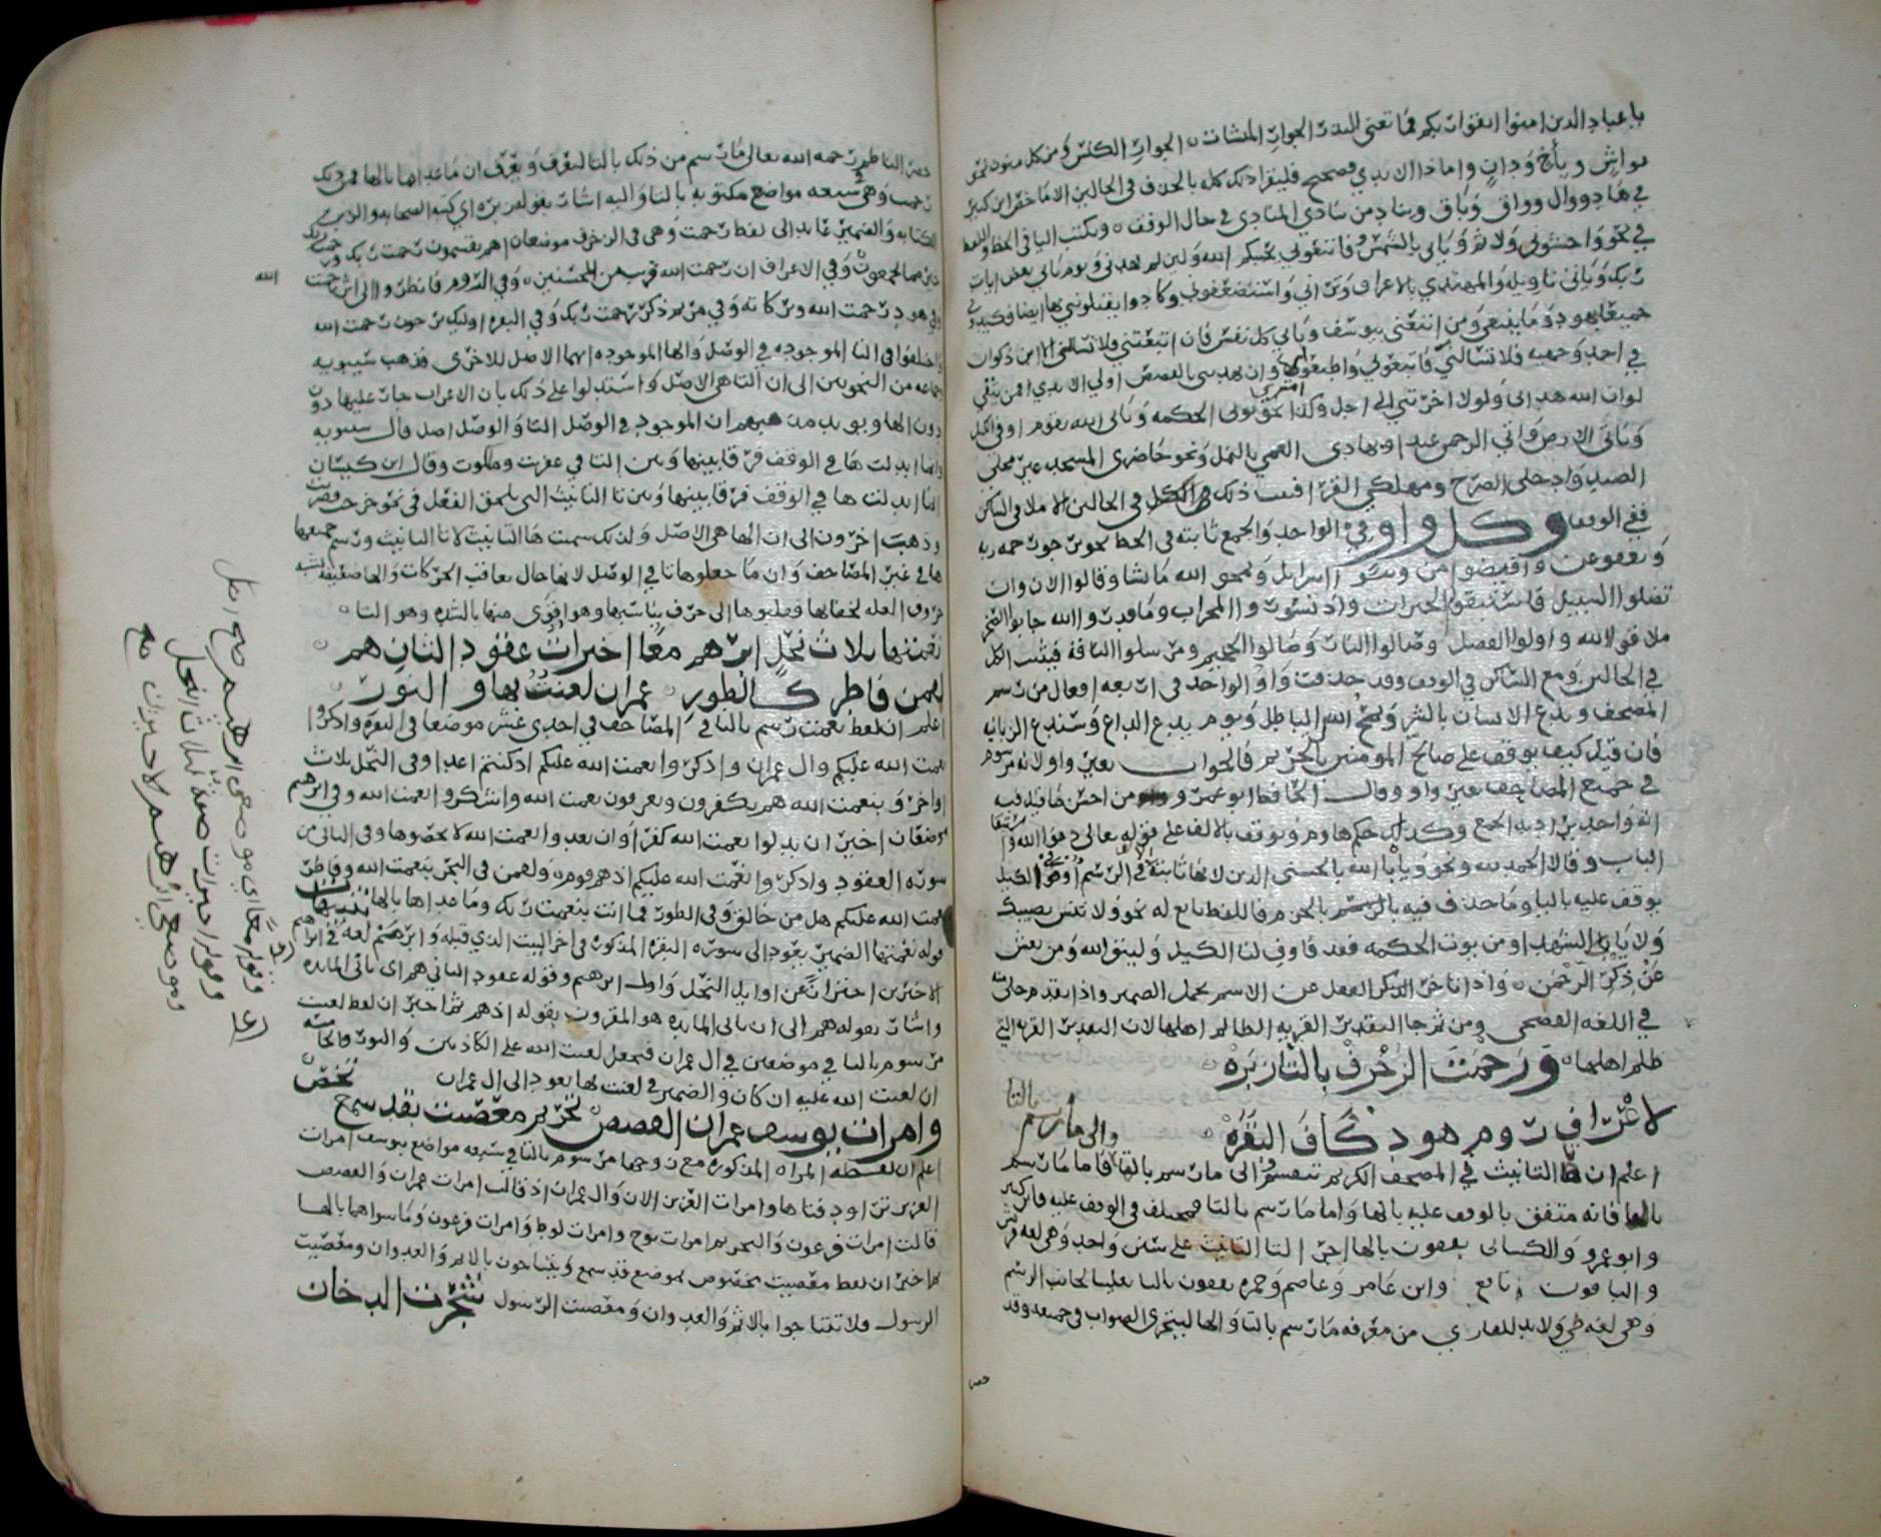 يا عباد الذين امنوا اتقوا ربكم فما تغني النذر الجوار المنشات الجوار الكنس ومن كل منون نحو
غواش وباغ ودان واما ذا الايدي فصحيح فليقرا ذلك كله بالحذف في الحالين الا ما خص ابن كثير
في هاد ووال وواق وباق ويناد من ينادي المنادي في حال الوقف ويكتب اليا في الخط واللفظ
في نحو واخشوني ولاتم وياتي بالشمس فاتبعوني يحببكم الله ولين لم يهدني ويوم ياتي بعض ايات
ربك وياتي تاويله والمهتدي بالاعراف وتراني واستضعفوني وكادوا يقتلونني ايضا فكيدوني
جميعا بهود وما نبغي ومن اتبعني بيوسف وتاتي كل نفس فان اتبعتني فلا تسالني الا ابن ذكوان
في احد وجهيه فلا تسالني فاتبعوني واطيعوا وان يهديني بالقصص اولي الايدي افمن يتقي
لو ان الله هداني ولولا اخرتني الى اجل وكذا نحو يوتي الحكمة وياتي الله بقوم اوفي الكيل
وناتي الارض واتي الرحمن عبدا وبهادي العمي بالنمل ونحو حاضري المسجد غير محلي
الصيد وادخلي الصرح ومهلكي القرى اثبت ذلك في الكل في الحالين الا ملاقي الساكن
ففي الوقف وكل واو في الواحد والجمع ثابتة في الخط نحو يرجو رحمة ربه
ويعفو عن وافيضوا من وبنو اسرايل ويمحو الله ما يشا وقالوا الان وان
تضلوا السبيل فاستبقوا الخيرات واذ تسوروا المحراب وما قدروا الله جابوا الصخر
ملاقوا الله واولوا الفضل وصالوا النار وصالوا الجحيم ومرسلوا الناقة فيثبت الكل
في الحالين ومع الساكن في الوقف وقد حذفت واو الواحد في اربعه افعال من رسم
المصحف ويدع الانسان بالشر ويمح الله الباطل ويوم يدع الداع وسندع الزبانيه
فان قيل كيف يوقف على صالح المومنين بالتحريم فالجواب بغير واو لانه مرسوم
في جميع المصاحف بغير واو وقال الحافظ ابو عمرو من احسن ما قيل فيه
انه واحد يراد به الجمع وكذلك حكم هاوم ويوقف بالالف على قوله تعالى دعوا الله واستبقا
الباب وقالا الحمد لله ونحو ويابا الله بالحسنى الذين لانها ثابتة في الرسم
يوقف عليه باليا وما حذف فيه بالرسم بالجزم فاللفظ تابع له نحو ولا تنس نصيبك
ولا ياب الشهدا ومن يوت الحكمه فقد فاوف لنا الكيل وليتق الله ومن يعش
عن ذكر الرحمن واذا تاخر الذكر الفعل عن الاسم تحمل الضمير واذا تقدم خلا منه
في اللغه الفصحى ومن ثم جا التقدير القريه الظالم اهلها لان التقدير القريه التي
ظلم اهلها ورحمت الزخرف بالتا زبره
لاعراف روم هود كاف البقره
اعلم ان ها التانيث في المصحف الكريم تنقسم الى ما رسم بالها والى ما رسم بالتا فاما ما رسم
بالها فانه متفق بالوقف عليه بالها واما ما رسم بالتا فمختلف في الوقف عليه فابن كثير
وابو عمرو والكسائى يقفون بالها اجرا لتا التانيث على سنن واحد وهي لغه قريش
والباقون نافع وابن عامر وعاصم وحمزه يقفون بالتا تغليبا لجانب الرسم
وهي لغه طي ولابد للقاري من معرفه ما رسم بالتا والها ليتحرى الصواب في جميعه وقد
حصر
حصر الناظم رحمه الله تعالى ما رسم من ذلك بالتا لتعرف ويعرف ان ما عداها بالها فمن ذلك
رحمت وهي سبعه مواضع مكتوبه بالتا واليه اشار بقوله زبره اي كتبه الصحابه
الكتابه والضمير عايد الى لفظ رحمت وهي في الزخرف موضعان اهم يقسمون رحمت ربك ورحمت ربك
خير مما يجمعون وفي الاعراف ان رحمت الله قريب من المحسنين وفي الروم فانظر الى اثر رحمت الله
وفي هود رحمت الله وبركاته وفي مريم ذكر رحمت ربك وفي البقره اوليك يرجون رحمت الله
واختلفوا في التا الموجوده في الوصل والها الموجوده ايهما الاصل للاخرى فذهب سيبويه
وجماعه من النحويين الى ان التا هي الاصل واستدلوا على ذلك بان الاعراب جار عليها دون
دون الها ويويد مذهبهم ان الموجود في الوصل التا والوصل اصل قال سيبويه
وانما ابدلت ها في الوقف فرقا بينها وبين التا في عفريت وملكوت وقال ابن كيسان
انما ابدلت ها في الوقف فرقا بينها وبين تا التانيث التي تلحق الفعل في نحو خرجت وضربت
وذهب اخرون الى ان الها هي الاصل ولذلك سميت ها التانيث لا تا التانيث ورسم جميعها
ها في غير المصاحف وان ما جعلوها تا في الوصل لانها حال تعاقب الحركات والها ضعيفه تشبه
حروف العله لخفايها فقلبوها الى حرف يناسبها وهو اقوى منها بالشده وهو التا
نعمتها ثلاث نحل ابرهم معا اخيرات عقود الثان هم
لقمن فاطر كالطور عمران لعنت بها والنور
اعلم ان لفظ نعمت رسم بالتا في المصاحف في احدى عشر موضعا في البقره واذكروا
نعمت الله عليكم وال عمران واذكروا نعمت الله عليكم اذ كنتم اعدا وفي النحل ثلاث
اواخر وبنعمت الله هم يكفرون ويعرفون نعمت الله واشكروا نعمت الله وفي ابرهم
موضعان اخيران بدلوا نعمت الله كفرا وان تعدوا نعمت الله لا تحصوها وفي الثاني من
سوره العقود واذكروا نعمت الله عليكم اذ هم قوم ولقمن في البحر بنعمت الله وفاطر
نعمت الله عليكم هل من خالق وفي الطور فما انت بنعمت ربك وما عداها بالها تنبيهات
قوله نعمتها الضمير يعود الى سوره البقره المذكوره في اخر البيت الذي قبله وابرهم لغه في ابراهيم
الاخيرين احترازا عن اوايل النحل واول ابرهم وقوله عقود الثاني هم اي ثاني المايده
واشار بقوله هم الى ان ثاني المايده هو المقرون بقوله اذ هم ثم اخبر ان لفظ لعنت
مرسوم بالتا في موضعين في ال عمران فنجعل لعنت الله على الكاذبين والنور والخامسه
ان لعنت الله عليه ان كان والضمير في لعنت بها يعود الى ال عمران
وامرات يوسف عمران القصص تحريم معصيت بقد سمع يخص
اعلم ان لفظه المراه المذكوره مع زوجها مرسوم بالتا في سبعه مواضع بيوسف امرات
العزيز تراود فتاها وامرات العزيز الان وال عمران اذ قالت امرات عمران والقصص
قالت امرات فرعون والتحريم امرات نوح وامرات لوط وامرات فرعون وما سواها بالها
ثم اخبر ان لفظ معصيت مخصوص بموضع قد سمع ويتناجون بالاثم والعدوان ومعصيت
الرسول فلا تتناجوا بالاثم والعدوان ومعصيت الرسول شجرت الدخان
الله
وقوله معا اي موضعي ابرهيم صح اصل
وقوله اخيرات صفة لثلاث النحل
وموضعي ابرهيم لاخيرات صح